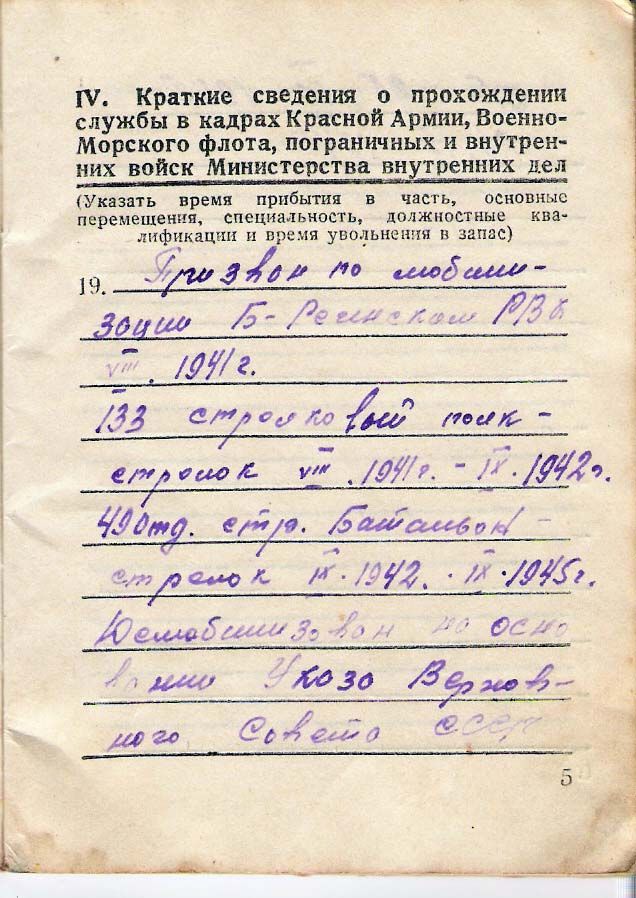 IV. Краткие сведения о прохождении
службы в кадрах Красной Армии, Военно-
Морского флота, пограничных и внутрен-
них войск Министерства внутренних дел
(Указать время прибытия в часть, основные
перемещения, специальность, должностные ква-
лификации и время увольнения в запас)
19. Призван по мобили-
зации РВК
VIII. 1941 г.
133 стрелковый полк -
стрелок VIII. 1941 г. - IX. 1942 г.
490тд. стр. Батальон -
стрелок IX. 1942. - IX. 1945 г.
Демобилизован на осно
вании Указа Верхов-
ного Совета СССР
5